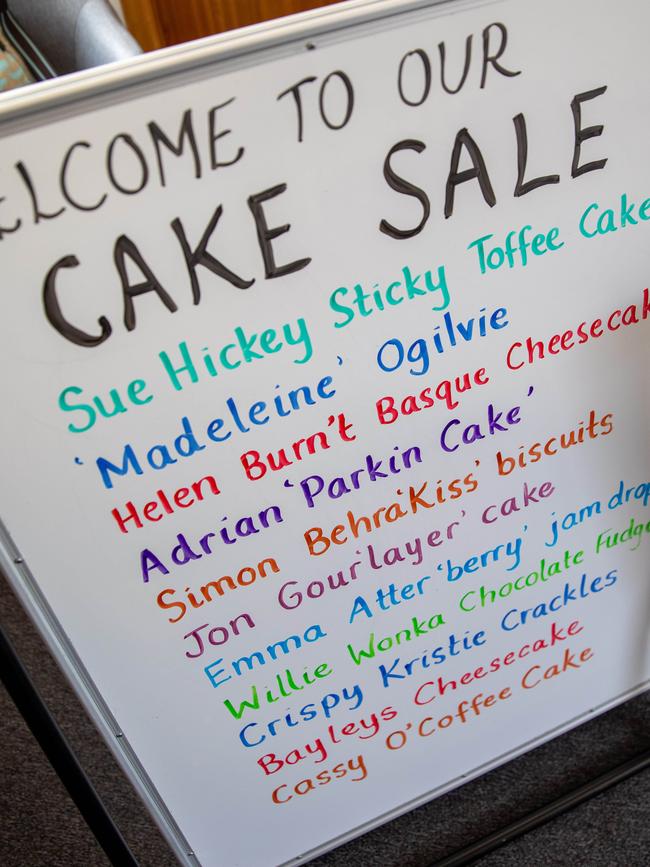 ELCOME TO OUR
CAKE SALE
Sue Hickey Sticky Toffee Cake
'Madeleine' Ogilvie
Helen Burn't Basque Cheesecak
Adrian 'Parkin Cake'
Simon Behra 'Kiss' biscuits
Jon Gour 'layer' cake
Emma Atter 'berry' jam drop
Willie Wonka Chocolate Fudge
Crispy Kristie Crackles
Bayleys Cheesecake
Cassy O'Coffee Cake